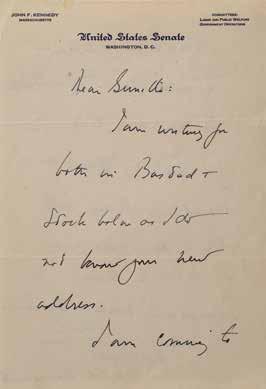 JOHN F. KENNEDY
MASSACHUSETTS
COMMITTEES:
LABOR AND PUBLIC WELFARE
GOVERNMENT OPERATIONS
United States Senate
WASHINGTON, D.C.
Dear Gunilla:
I am writing you
both in Bastad +
Stockholm as I do
not know your new
address.
I am coming to